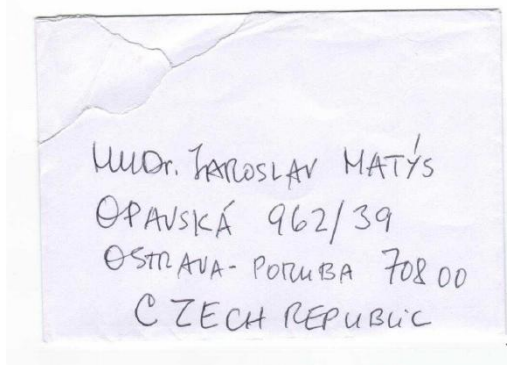 MUDr. JAROSLAV MATÝS
OPAVSKÁ 962/39
OSTRAVA-PORUBA 708 00
CZECH REPUBLIC